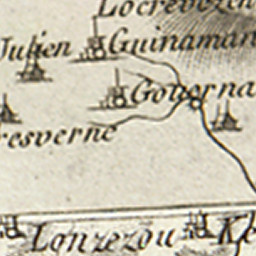 Locrevozen
Julien Guinaman
Gouerna
resverne
Lonzezou Ke